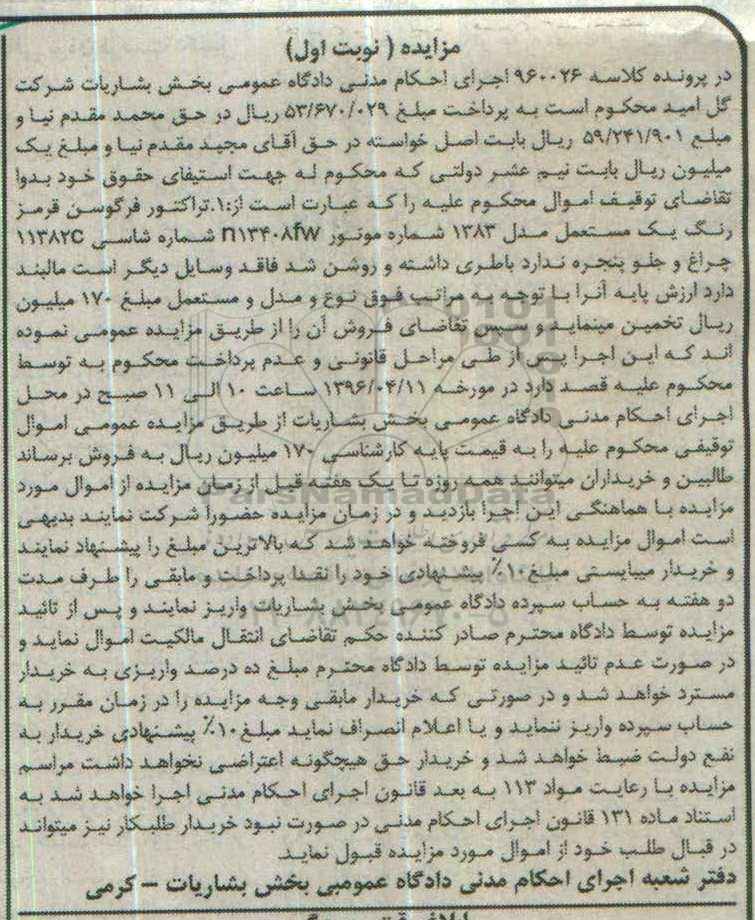 مزایده ( نوبت اول)
در پرونده کلاسه ۹۶۰۰۲۶ اجرای احکام مدنی دادگاه عمومی بخش بشاریات شرکت
گل امید محکوم است به پرداخت مبلغ ۵۳/۶۷۰/۰۲۹ ریال در حق محمد مقدم نیا و
مبلغ ۵۹/۲۴۱/۹۰۱ ریال بابت اصل خواسته در حق آقای مجید مقدم نیا و مبلغ یک
میلیون ریال بابت نیم عشر دولتی که محکوم له جهت استیفای حقوق خود بدوا
تقاضای توقیف اموال محکوم علیه را که عبارت است از:۱.تراکتور فرگوسن قرمز
رنگ یک مستعمل مدل ۱۳۸۳ شماره موتور n۱۳۴۰۸fw شماره شاسی ۱۱۳۸۲c
چراغ و جلو پنجره ندارد باطری داشته و روشن شد فاقد وسایل دیگر است مالبند
دارد ارزش پایه آنرا با توجه به مراتب فوق نوع و مدل و مستعمل مبلغ ۱۷۰ میلیون
ریال تخمین مینماید و سپس تقاضای فروش آن را از طریق مزایده عمومی نموده
اند که این اجرا پس از طی مراحل قانونی و عدم پرداخت محکوم به توسط
محکوم علیه قصد دارد در مورخه ۱۳۹۶/۰۴/۱۱ ساعت ۱۰ الی ۱۱ صبح در محل
اجرای احکام مدنی دادگاه عمومی بخش بشاریات از طریق مزایده عمومی اموال
توقیفی محکوم علیه را به قیمت پایه کارشناسی ۱۷۰ میلیون ریال به فروش برساند
طالبین و خریداران میتوانند همه روزه تا یک هفته قبل از زمان مزایده از اموال مورد
مزایده با هماهنگی این اجرا بازدید و در زمان مزایده حضورا شرکت نمایند بدیهی
است اموال مزایده به کسی فروخته خواهد شد که بالاترین مبلغ را پیشنهاد نمایند
و خریدار میبایستی مبلغ۱۰٪ پیشنهادی خود را نقدا پرداخت و مابقی را ظرف مدت
دو هفته به حساب سپرده دادگاه عمومی بخش بشاریات واریز نمایند و پس از تائید
مزایده توسط دادگاه محترم صادر کننده حکم تقاضای انتقال مالکیت اموال نماید و
در صورت عدم تائید مزایده توسط دادگاه محترم مبلغ ده درصد واریزی به خریدار
مسترد خواهد شد و در صورتی که خریدار مابقی وجه مزایده را در زمان مقرر به
حساب سپرده واریز ننماید و یا اعلام انصراف نماید مبلغ۱۰٪ پیشنهادی خریدار به
نفع دولت ضبط خواهد شد و خریدار حق هیچگونه اعتراضی نخواهد داشت مراسم
مزایده با رعایت مواد ۱۱۳ به بعد قانون اجرای احکام مدنی اجرا خواهد شد به
استناد ماده ۱۳۱ قانون اجرای احکام مدنی در صورت نبود خریدار طلبکار نیز میتواند
در قبال طلب خود از اموال مورد مزایده قبول نماید.
دفتر شعبه اجرای احکام مدنی دادگاه عمومبی بخش بشاریات – کرمی
ParsNamadData